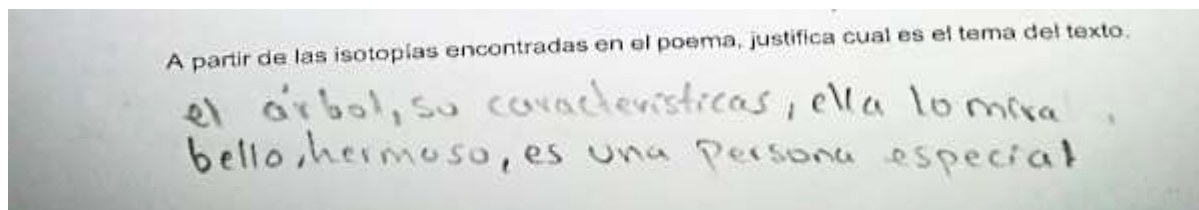 A partir de las isotopías encontradas en el poema, justifica cual es el tema del texto.
el árbol, su caracteristicas, ella lo mira
bello, hermoso, es una persona especial